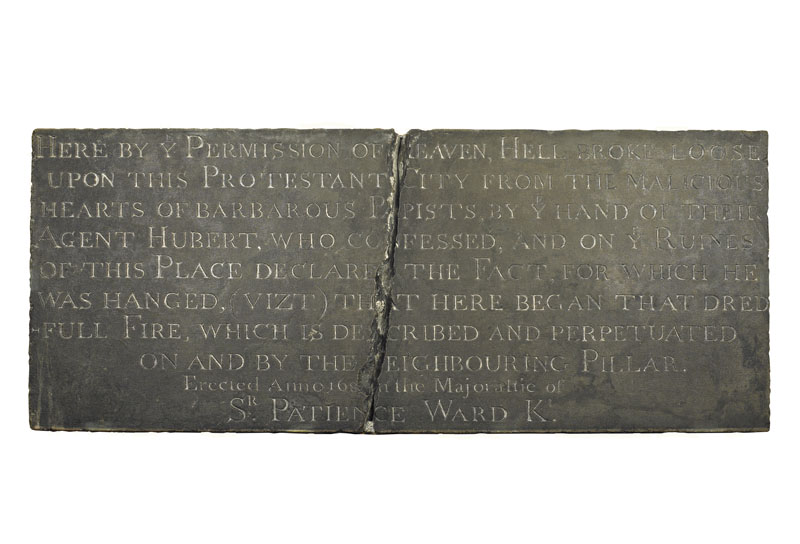 HERE BY Yᵉ PERMISSION OF HEAVEN, HELL BROKE LOOSE
UPON THIS PROTESTANT CITY FROM THE MALICIOUS
HEARTS OF BARBAROUS PAPISTS, BY Yᵉ HAND OF THEIR
AGENT HUBERT, WHO CONFESSED, AND ON Yᵉ RUINES
OF THIS PLACE DECLARED THE FACT, FOR WHICH HE
WAS HANGED, (VIZT) THAT HERE BEGAN THAT DRED
-FULL FIRE, WHICH IS DESCRIBED AND PERPETUATED
ON AND BY THE NEIGHBOURING PILLAR.
Erected Anno in the Majoraltie of
Sᴿ PATIENCE WARD Kᵗ.